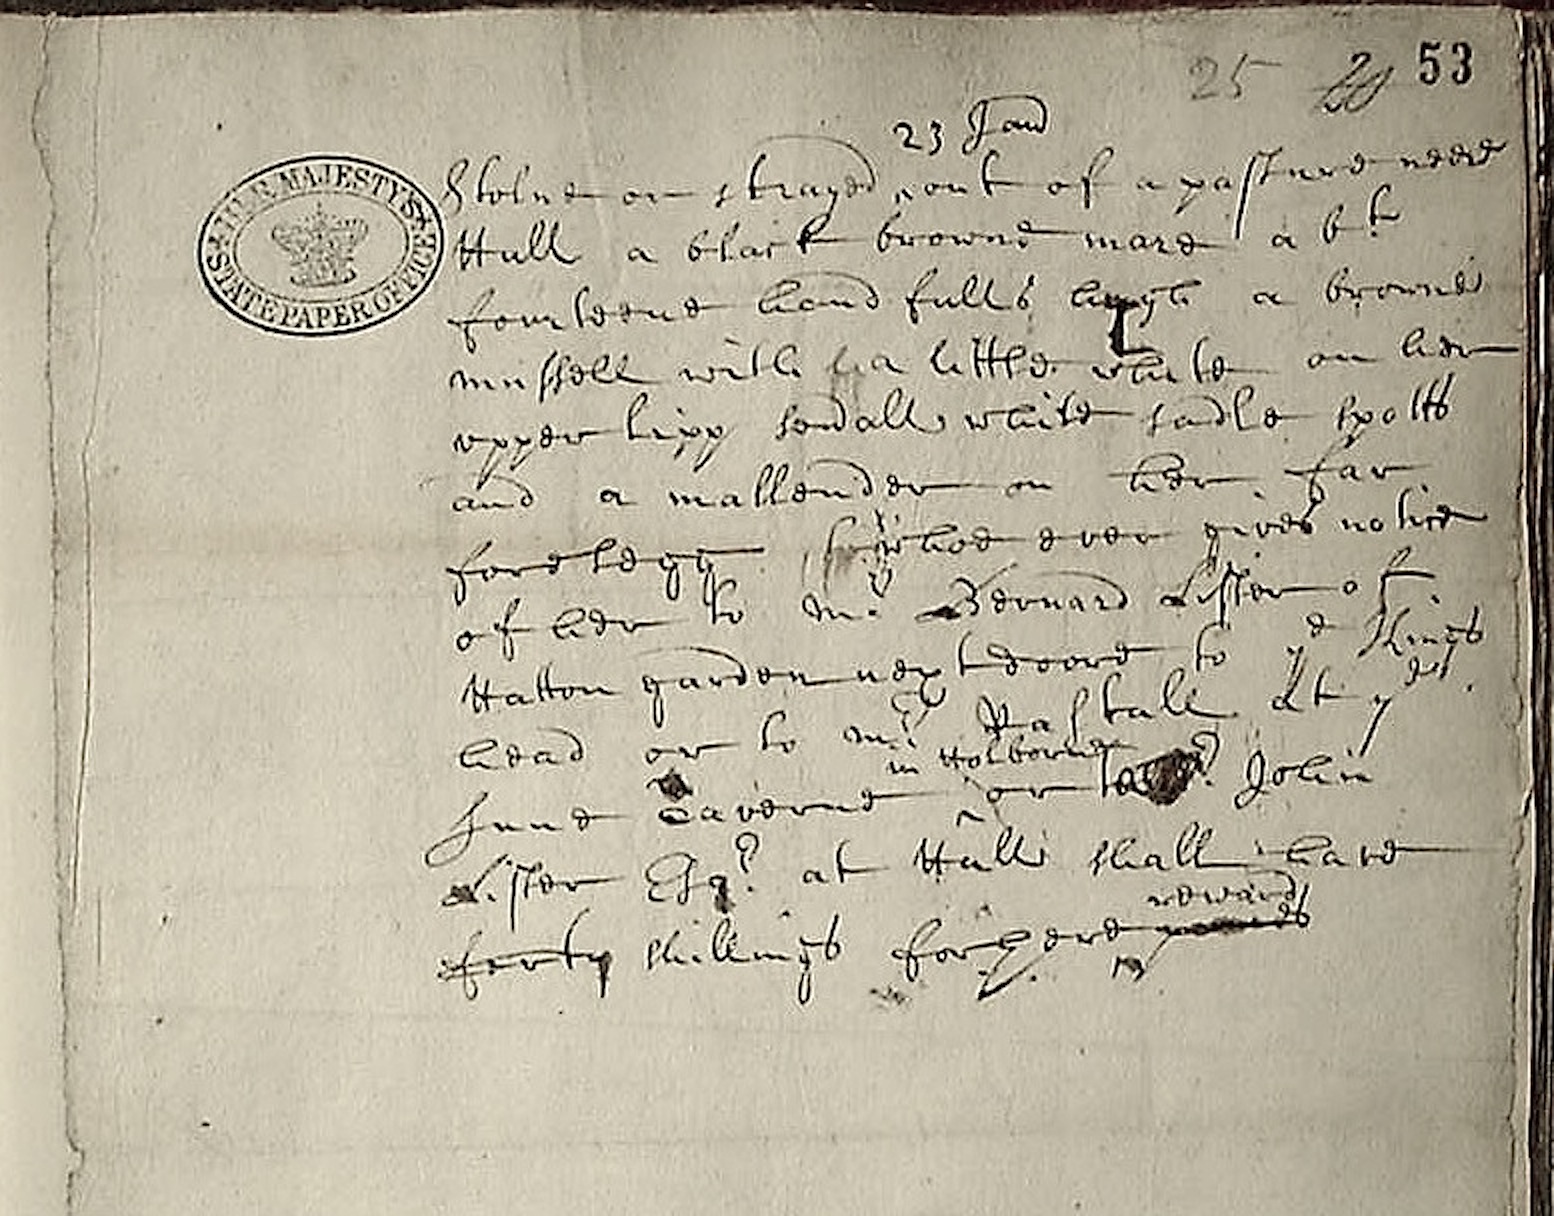 25 20 53
23 Jan
HER MAJESTY'S STATE PAPER OFFICE
Stolne or strayed out of a pasture neere
Hull a black browne mare abt
fourteene hand fulls high a browne
mussell with a little white on her
upper lipp small white sadle spotts
and a mallender on her far
forelegg whoe ever gives notice
of her to Mr Bernard Lister of
Hatton garden next doore to ye Kings
head or to Mr Rastall at ye
in Holborne
Sune Taverne or to John
Lister Esqr at Hull shall have
reward
forty shillings for